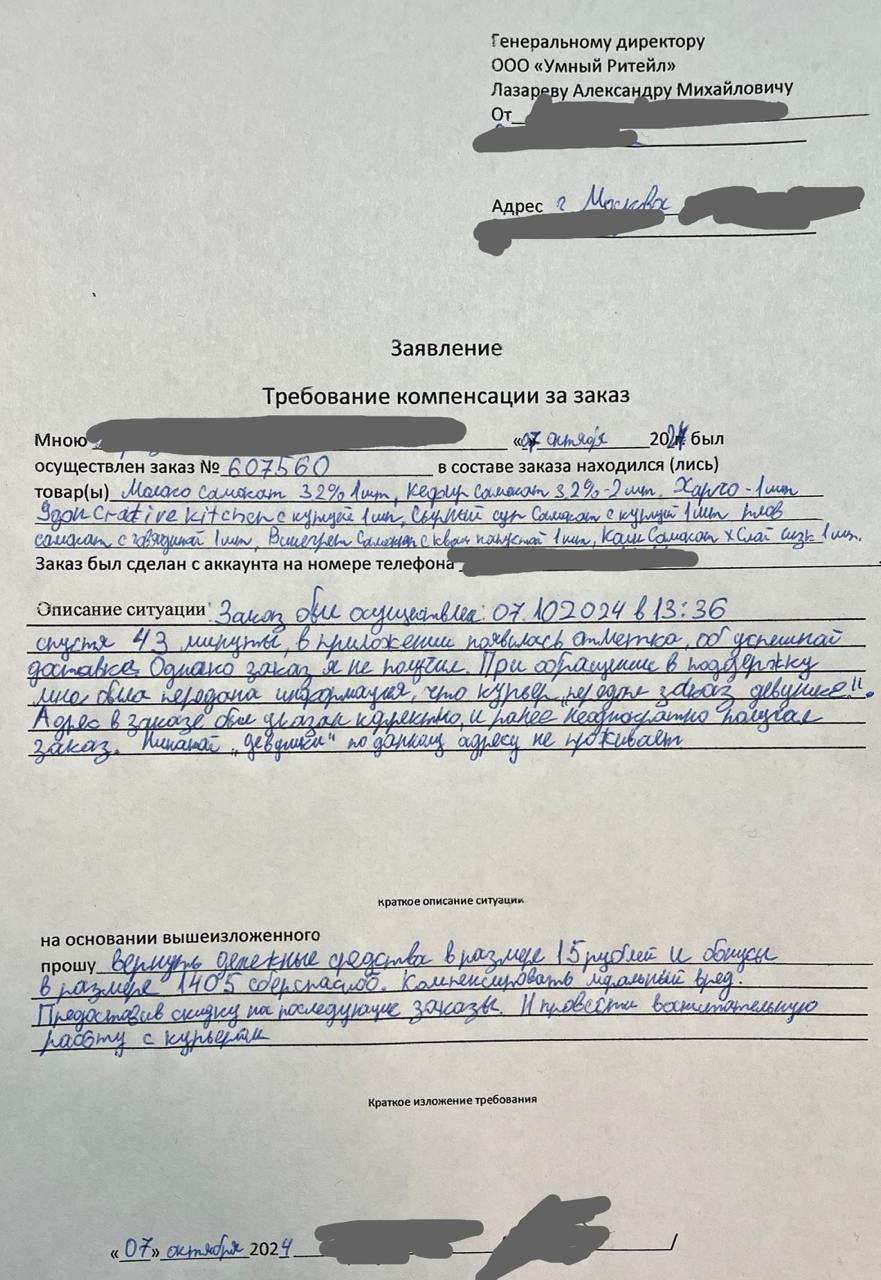 Генеральному директору
ООО «Умный Ритейл»
Лазареву Александру Михайловичу
От
Адрес г Москва
Заявление
Требование компенсации за заказ
Мною «07 октября 2024 был
осуществлен заказ № 607560 в составе заказа находился (лись)
товар(ы) Молоко Самокат 3,2% 1шт, Кефир Самокат 3,2%-2шт. Харчо-1шт
Удон Crative kitchen с курицей 1шт, Сырный суп Самокат с курицей 1шт плов
самокат с говядиной 1шт, Винегрет Самокат с квашен капустой 1шт, Самокат 1шт.
Заказ был сделан с аккаунта на номере телефона
Описание ситуации: Заказ был осуществлен: 07.10 2024 в 13:36
спустя 43 минуты, в приложении появилась отметка, об успешной
доставке. Однако заказ я не получил. При обращении в поддержку
мне была передана информация, что курьер „передал заказ девушке".
Адрес в заказе был указан корректно, и ранее неоднократно получал
заказ. Никакой „девушки" по данному адресу не проживает
краткое описание ситуации
на основании вышеизложенного
прошу вернуть денежные средства в размере 15 рублей и бонусы
в размере 1405 сберспасибо. Компенсировать моральный вред.
Предоставив скидку на последующие заказы. И провести воспитательную
работу с курьером
Краткое изложение требования
«07» октября 2024 /